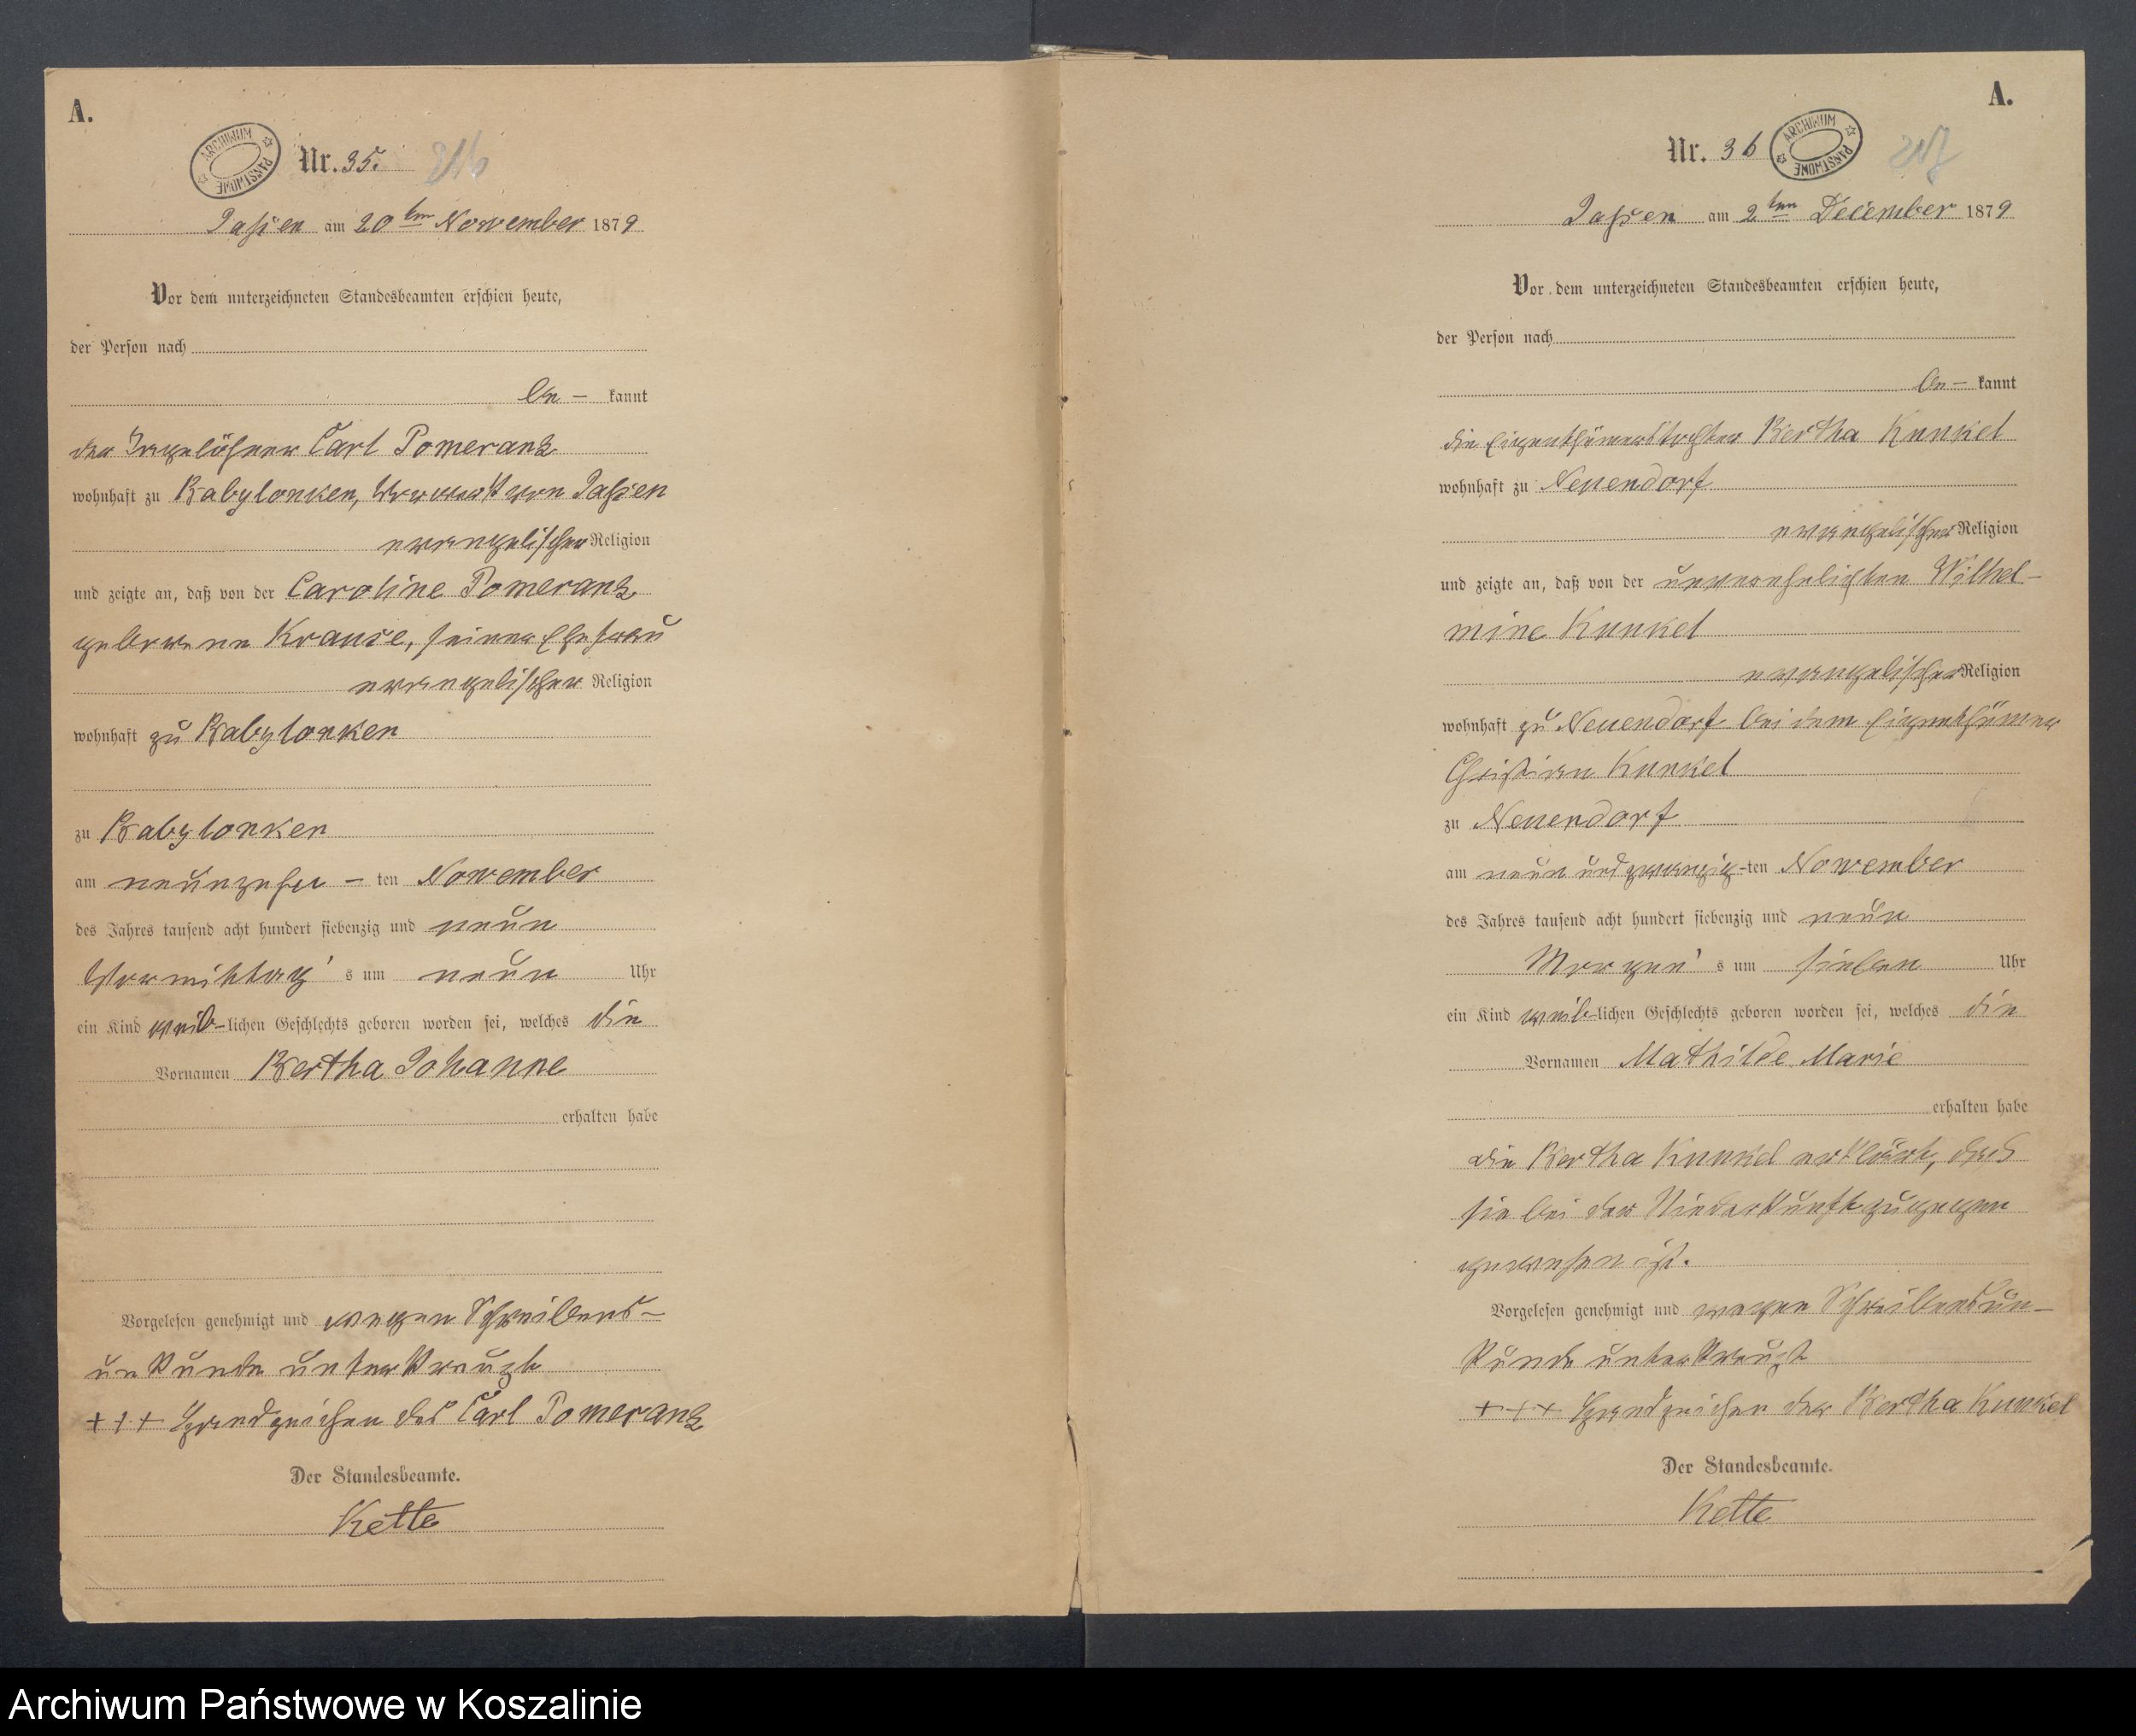 A.
ARCHIWUM PAŃSTWOWE
Nr. 35.
Jassen am 20ten November 1879
Vor dem unterzeichneten Standesbeamten erschien heute,
der Person nach
be – kannt
der Tagelöhner Carl Pomeranz
wohnhaft zu Babylonken, Vorwerk von Jassen
evangelischer Religion
und zeigte an, daß von der Caroline Pomeranz
geborene Krause, seiner Ehefrau
evangelischer Religion
wohnhaft zu Babylonken
zu Babylonken
am neunzehn – ten November
des Jahres tausend acht hundert siebenzig und neun
Vormittag's um neun Uhr
ein Kind weib-lichen Geschlechts geboren worden sei, welches die
Vornamen Bertha Johanne
erhalten habe
Vorgelesen genehmigt und wegen Schreibens-
unkunde unterkreuzt
+++ Handzeichen des Carl Pomeranz
Der Standesbeamte.
Kette
A.
Nr. 36
ARCHIWUM PAŃSTWOWE
Jassen am 2ten December 1879
Vor dem unterzeichneten Standesbeamten erschien heute,
der Person nach
be – kannt
die Eigenthümerstochter Bertha Kunkel
wohnhaft zu Neuendorf
evangelischer Religion
und zeigte an, daß von der unverehelichten Wilhel-
mine Kunkel
evangelischer Religion
wohnhaft zu Neuendorf bei dem Eigenthümer
Christian Kunkel
zu Neuendorf
am neun und zwanzig-ten November
des Jahres tausend acht hundert siebenzig und neun
Morgen's um sieben Uhr
ein Kind weib-lichen Geschlechts geboren worden sei, welches die
Vornamen Mathilde Marie
erhalten habe
die Bertha Kunkel erklärt, daß
sie bei der Niederkunft zugegen
gewesen ist.
Vorgelesen genehmigt und wegen Schreibensun-
kunde unterkreuzt
+++ Handzeichen der Bertha Kunkel
Der Standesbeamte.
Kette
Archiwum Państwowe w Koszalinie